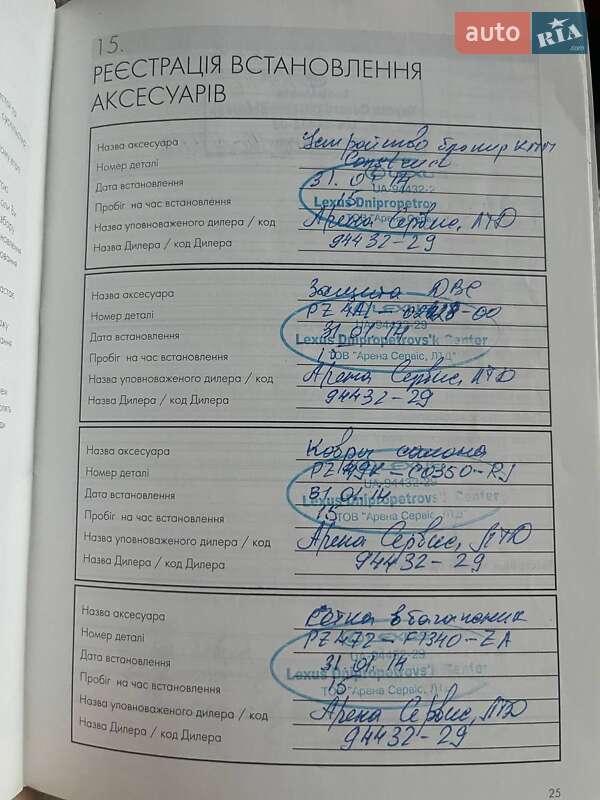 auto RIA.com
15.
РЕЄСТРАЦІЯ ВСТАНОВЛЕННЯ
АКСЕСУАРІВ
Назва аксесуара Устройство блокир КПП
Номер деталі
Дата встановлення 31.01.14
UA-94432-2
Пробіг на час встановлення 15
Lexus Dnipropetrov
ТОВ "Арена Сервіс, ЛТД"
Назва уповноваженого дилера / код Арена Сервис, ЛТД
Назва Дилера / код Дилера 94432-29
Назва аксесуара Защита ДВС
Номер деталі
Дата встановлення 31.01.14
Lexus Dnipropetrovs'k Center
Пробіг на час встановлення 15
ТОВ "Арена Сервіс, ЛТД"
Назва уповноваженого дилера / код Арена Сервис, ЛТД
Назва Дилера / код Дилера 94432-29
Назва аксесуара Ковры салона
Номер деталі
UA-94432-29
Дата встановлення 31.01.14
Lexus Dnipropetrovs'k Center
Пробіг на час встановлення 15
ТОВ "Арена Сервіс, ЛТД"
Назва уповноваженого дилера / код Арена Сервис, ЛТД
Назва Дилера / код Дилера 94432-29
Назва аксесуара Сетка в багажник
Номер деталі PZ472-F1340-ZA
UA-94432-29
Дата встановлення 31.01.14
Lexus Dnipropetrovs'k Center
Пробіг на час встановлення 15
ТОВ "Арена Сервіс, ЛТД"
Назва уповноваженого дилера / код Арена Сервис, ЛТД
Назва Дилера / код Дилера 94432-29
25